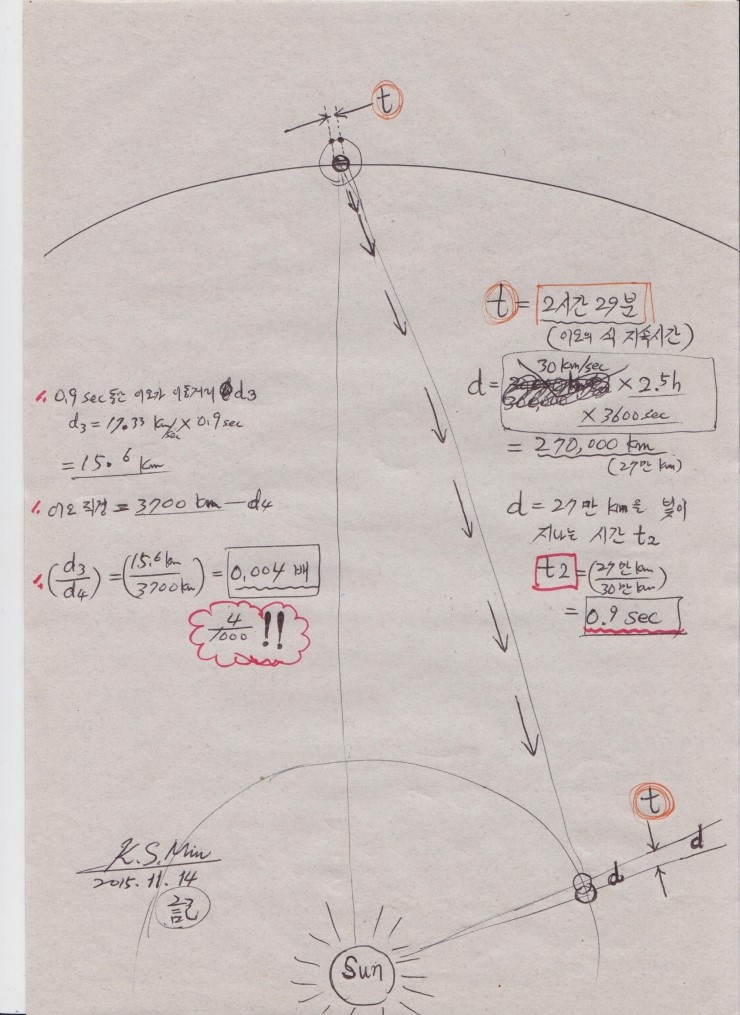 t
t = 2시간 29분
(이오의 식 지속시간)
30 km/sec
d = × 2.5h
× 3600 sec
= 270,000 km
(27만 km)
d = 27만 km을 빛이
지나는 시간 t2
t2 = (27만 km / 30만 km)
= 0.9 sec
0.9 sec 동안 이오가 이동거리 d3
d3 = 17.33 km/sec × 0.9 sec
= 15.6 km
이오 직경 = 3700 km — d4
(d3 / d4) = (15.6 km / 3700 km) = 0.004 배
4/1000 !!
t
d
d
K.S. Min
2015. 11. 14
記
Sun